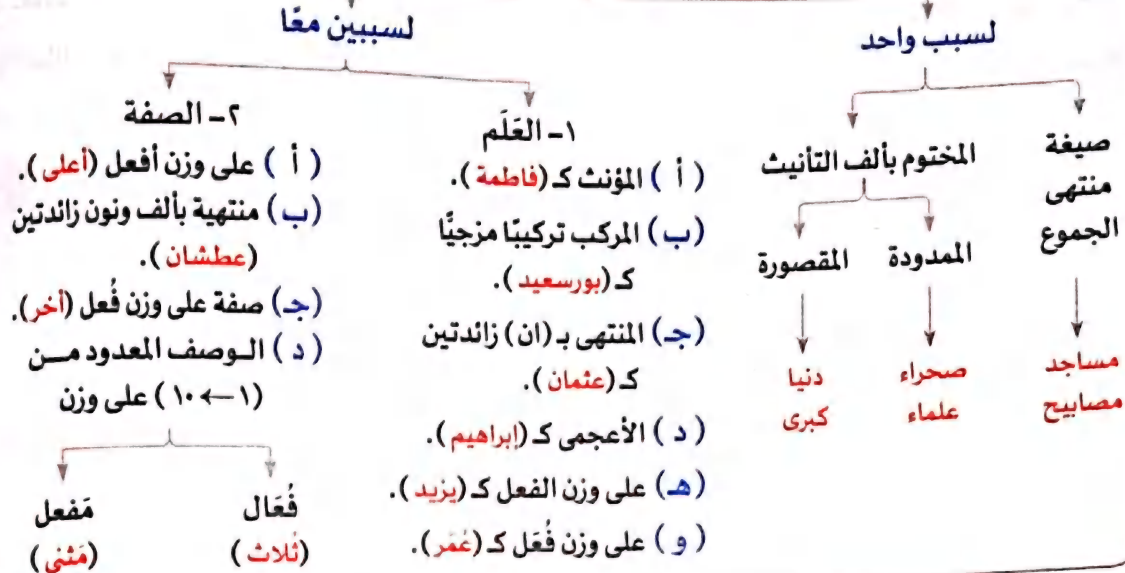 لسبب واحد
صيغة
منتهى
الجموع
مساجد
مصابيح
المختوم بألف التأنيث
الممدودة
صحراء
علماء
المقصورة
دنيا
كبرى
لسببين معًا
١- العَلَم
( أ ) المؤنث كـ (فاطمة).
(ب) المركب تركيبًا مزجيًّا
كـ (بورسعيد).
(جـ) المنتهى بـ (ان) زائدتين
كـ (عثمان).
( د ) الأعجمى كـ (إبراهيم).
(هـ) على وزن الفعل كـ (يزيد).
( و ) على وزن فُعَل كـ (عُمَر).
٢- الصفة
( أ ) على وزن أفعل (أعلى).
(ب) منتهية بألف ونون زائدتين
(عطشان).
(جـ) صفة على وزن فُعل (أخر).
( د ) الـوصف المعدود مـــن
(١ ← ١٠) على وزن
فُعَال
(ثُلاث)
مَفعل
(مَثنى)